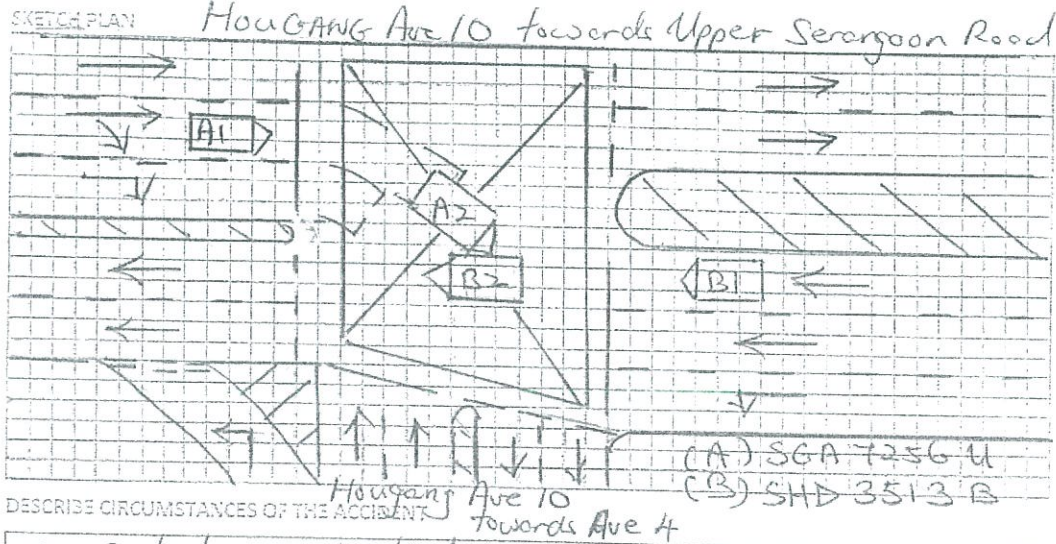 SKETCH PLAN
HOUGANG Ave 10 towards Upper Serangoon Road
A1
A2
B2
B1
(A) SGA 7256 U
(B) SHD 3513 B
Hougang Ave 10
towards Ave 4
DESCRIBE CIRCUMSTANCES OF THE ACCIDENT